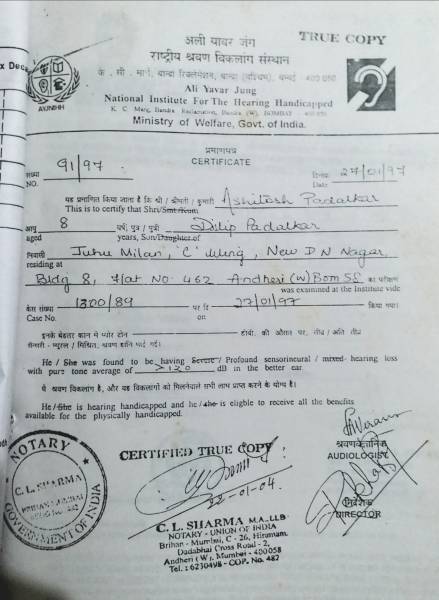 x Dec
अली यावर जंग
TRUE COPY
राष्ट्रीय श्रवण विकलांग संस्थान
के. सी. मार्ग, बान्द्रा रिक्लेमेशन, बान्द्रा (पश्चिम), बम्बई 400 050
AYJNIHH
Ali Yavar Jung
National Institute For The Hearing Handicapped
K. C. Marg, Bandra Reclamation, Bandra (W), BOMBAY 400 050
Ministry of Welfare, Govt. of India.
प्रमाणपत्र
CERTIFICATE
संख्या 91/97 दिनांक 27/01/97
NO. Date
यह प्रमाणित किया जाता है कि श्री / श्रीमती / कुमारी Ashitosh Padalkar
This is to certify that Shri/Smt/Kum
आयु 8 वर्ष, पुत्र / पुत्री Dilip Padalkar
aged years, Son/Daughter of
निवासी Juhu Milan, 'C' Wing, New D N Nagar
residing at
Bldg 8, Flat No. 462 Andheri (W) Bom 58 का परीक्षण
was examined at the Institute vide
केस संख्या 1300/89 पर दि 27/01/97 किया गया।
Case No. on
इनके बेहतर कान में प्योर टोन डीबी. की औसत पर, तीव्र / अति तीव्र
सेन्सरी - न्यूरल / मिश्रित, श्रवण हानि पाई गई।
He / She was found to be having Severe / Profound sensorineural / mixed- hearing loss
with pure tone average of >120 dB in the better ear.
ये श्रवण विकलांग है, और वह विकलांगों को मिलनेवाले सभी लाभ प्राप्त करने के योग्य है।
He/She is hearing handicapped and he/she is eligible to receive all the benefits
available for the physically handicapped.
श्रवणवैज्ञानिक
AUDIOLOGIST
CERTIFIED TRUE COPY
22-01-04.
निदेशक
DIRECTOR
NOTARY
C. L. SHARMA
GOVERNMENT OF INDIA
C. L. SHARMA M.A., LLB
NOTARY - UNION OF INDIA
Brihan - Mumbai, C - 26, Hiranum.
Dadabhai Cross Road - 2,
Andheri (W), Mumbai - 400058
Tel. : 6230498 - COP. No. 482